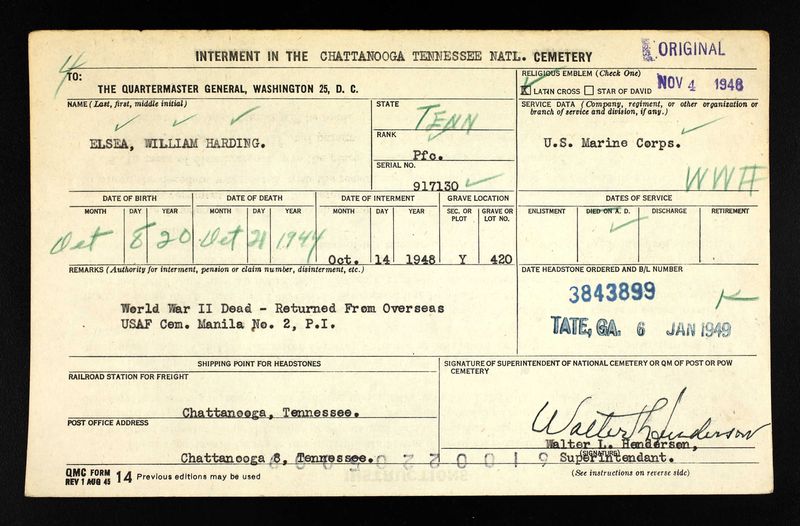 INTERMENT IN THE CHATTANOOGA TENNESSEE NATL. CEMETERY
ORIGINAL
4
TO:
THE QUARTERMASTER GENERAL, WASHINGTON 25, D. C.
RELIGIOUS EMBLEM (Check One)
X LATIN CROSS STAR OF DAVID
NOV 4 1948
NAME (Last, first, middle initial)
ELSEA, WILLIAM HARDING.
STATE
TENN
RANK
Pfc.
SERIAL NO.
917130
SERVICE DATA (Company, regiment, or other organization or branch of service and division, if any.)
U.S. Marine Corps.
WWII
DATE OF BIRTH
DATE OF DEATH
DATE OF INTERMENT
GRAVE LOCATION
DATES OF SERVICE
MONTH DAY YEAR MONTH DAY YEAR MONTH DAY YEAR SEC. OR PLOT GRAVE OR LOT NO. ENLISTMENT DIED ON A. D. DISCHARGE RETIREMENT
Oct 8 20 Oct 21 1944 Oct. 14 1948 Y 420
REMARKS (Authority for interment, pension or claim number, disinterment, etc.)
World War II Dead - Returned From Overseas
USAF Cem. Manila No. 2, P.I.
DATE HEADSTONE ORDERED AND B/L NUMBER
3843899
TATE, GA. 6 JAN 1949
SHIPPING POINT FOR HEADSTONES
RAILROAD STATION FOR FREIGHT
Chattanooga, Tennessee.
POST OFFICE ADDRESS
Chattanooga 8, Tennessee.
SIGNATURE OF SUPERINTENDENT OF NATIONAL CEMETERY OR QM OF POST OR POW CEMETERY
Walter L. Henderson
Walter L. Henderson,
(SIGNATURE)
Superintendant.
(See instructions on reverse side)
QMC FORM
REV 1 AUG 45 14 Previous editions may be used